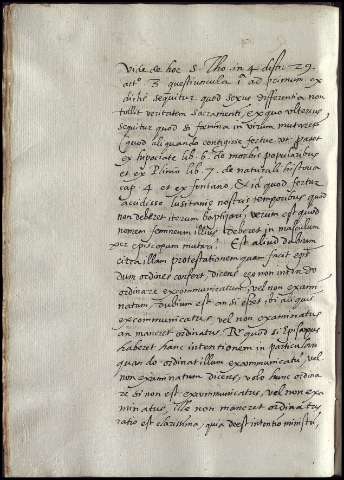 Vide de hoc S. Tho. in 4 distin. 29.
art.º 3 quęstiuncula 1ª ad primum, ex
dictis sequitur quod sexus differentia non
tollit veritatem sacramenti, ex quo ulterius
sequitur quod si fęmina in virum mutaretur
(quod aliquando contigisse fertur ut patet
ex hypocrate lib. 6. de morbis popularibus
et ex Plinio lib. 7. de naturali historia
cap. 4 et ex fontano. & id quod fertur
accidisse lusitanię nostris temporibus quod
non deberet iterum baptizari, verum est quod
nomen femineum illius deberet in masculum
per episcopum mutari. Est aliud dubium
circa illam protestationem quam facit epis
dum ordines confert, dicens, ego non intendo
ordinare excommunicatum, vel non exami
natum, dubium est an si esset ibi aliquis
excommunicatus, vel non examinatus
an maneret ordinatus. R. quod si Episcopus
haberet hanc intentionem in particulari
quando ordinat illum excommunicatum, vel
non examinatum dicens, volo hunc ordina
re si non est excommunicatus, vel non exa
minatus, ille non maneret ordinatus
ratio est clarissima, quia deest intentio ministri,